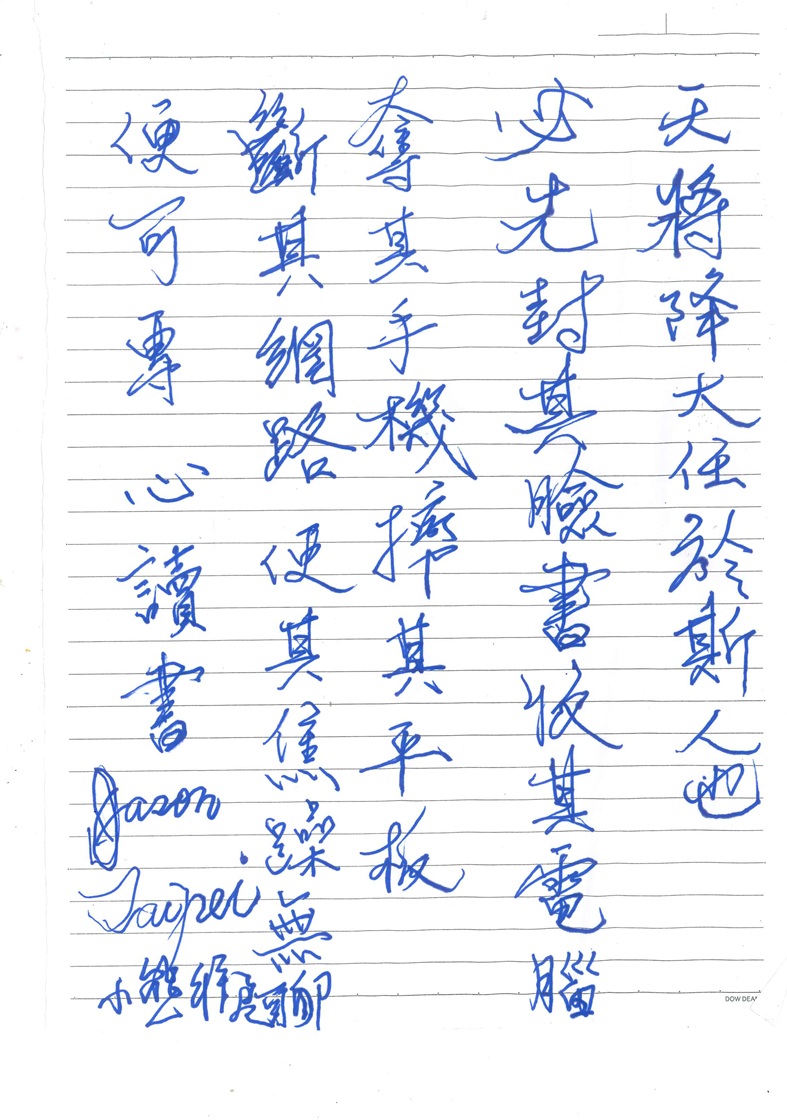 天將降大任於斯人也
必先封其臉書收其電腦
奪其手機摔其平板
斷其網路使其焦躁無聊
便可專心讀書
Jason
Taipei
DOW DEA